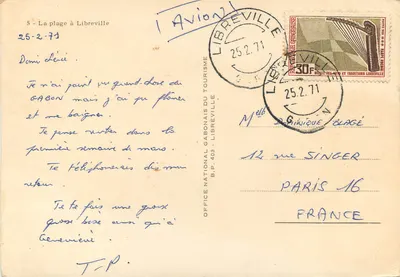 3 - La plage à Libreville
25-2-71
Demi chérie.
Je n'ai point vu grand chose du
GABON mais j'ai pu flâner
et me baigner.
Je pense rentrer dans la
première semaine de mars.
Te téléphonerai dès mon
retour.
Je te fais une grosse
bise ainsi qu'à
Geneviève.
T-P.
OFFICE NATIONAL GABONAIS DU TOURISME
B.P. 403 - LIBREVILLE
(Avion)
LIBREVILLE
25.2.71
LIBREVILLE
25.2.71
30F
Melle
12 rue SINGER
PARIS 16
FRANCE